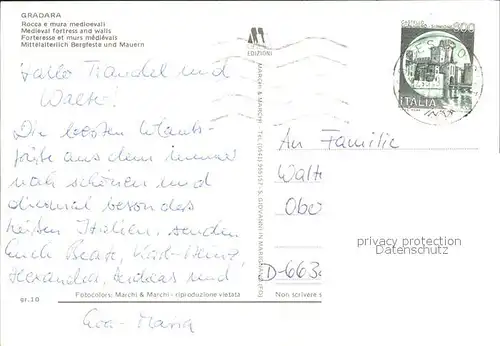 GRADARA
Rocca e mura medioevali
Medieval fortress and walls
Forteresse et murs médiévals
Mittelalterlich Bergfeste und Mauern
EDIZIONI
800
ITALIA
Hallo Trandel und
Walter!
Die besten Urlaubs-
grüße aus dem immer
noch schönen und
diesmal besonders
heißen Italien, senden
Euch Beate, Karl-Heinz,
Alexandra, Andreas und
Eva-Maria
An Familie
Walt
Obe
D-663
privacy protection
Datenschutz
MARCHI & MARCHI - Tel. (0541) 955157 - S. GIOVANNI IN MARIGNANO (FO)
gr.10
Fotocolors: Marchi & Marchi - riproduzione vietata
Non scrivere s